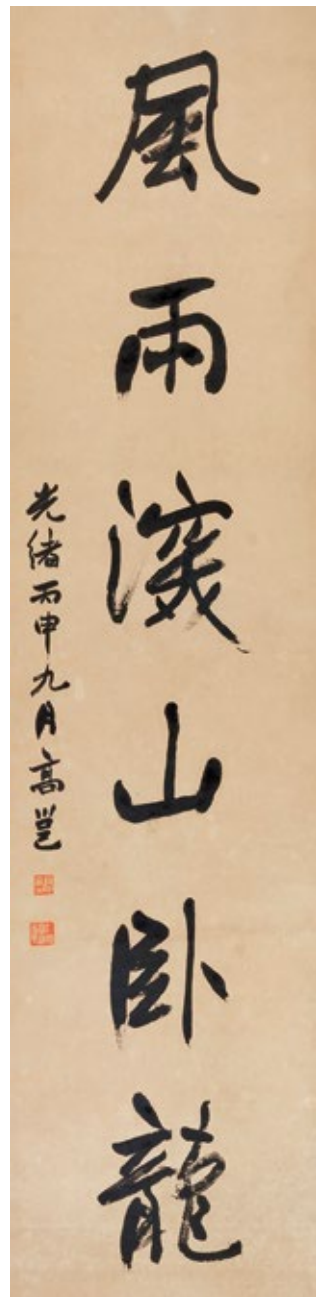 風雨深山卧龍
光緒丙申九月高邕